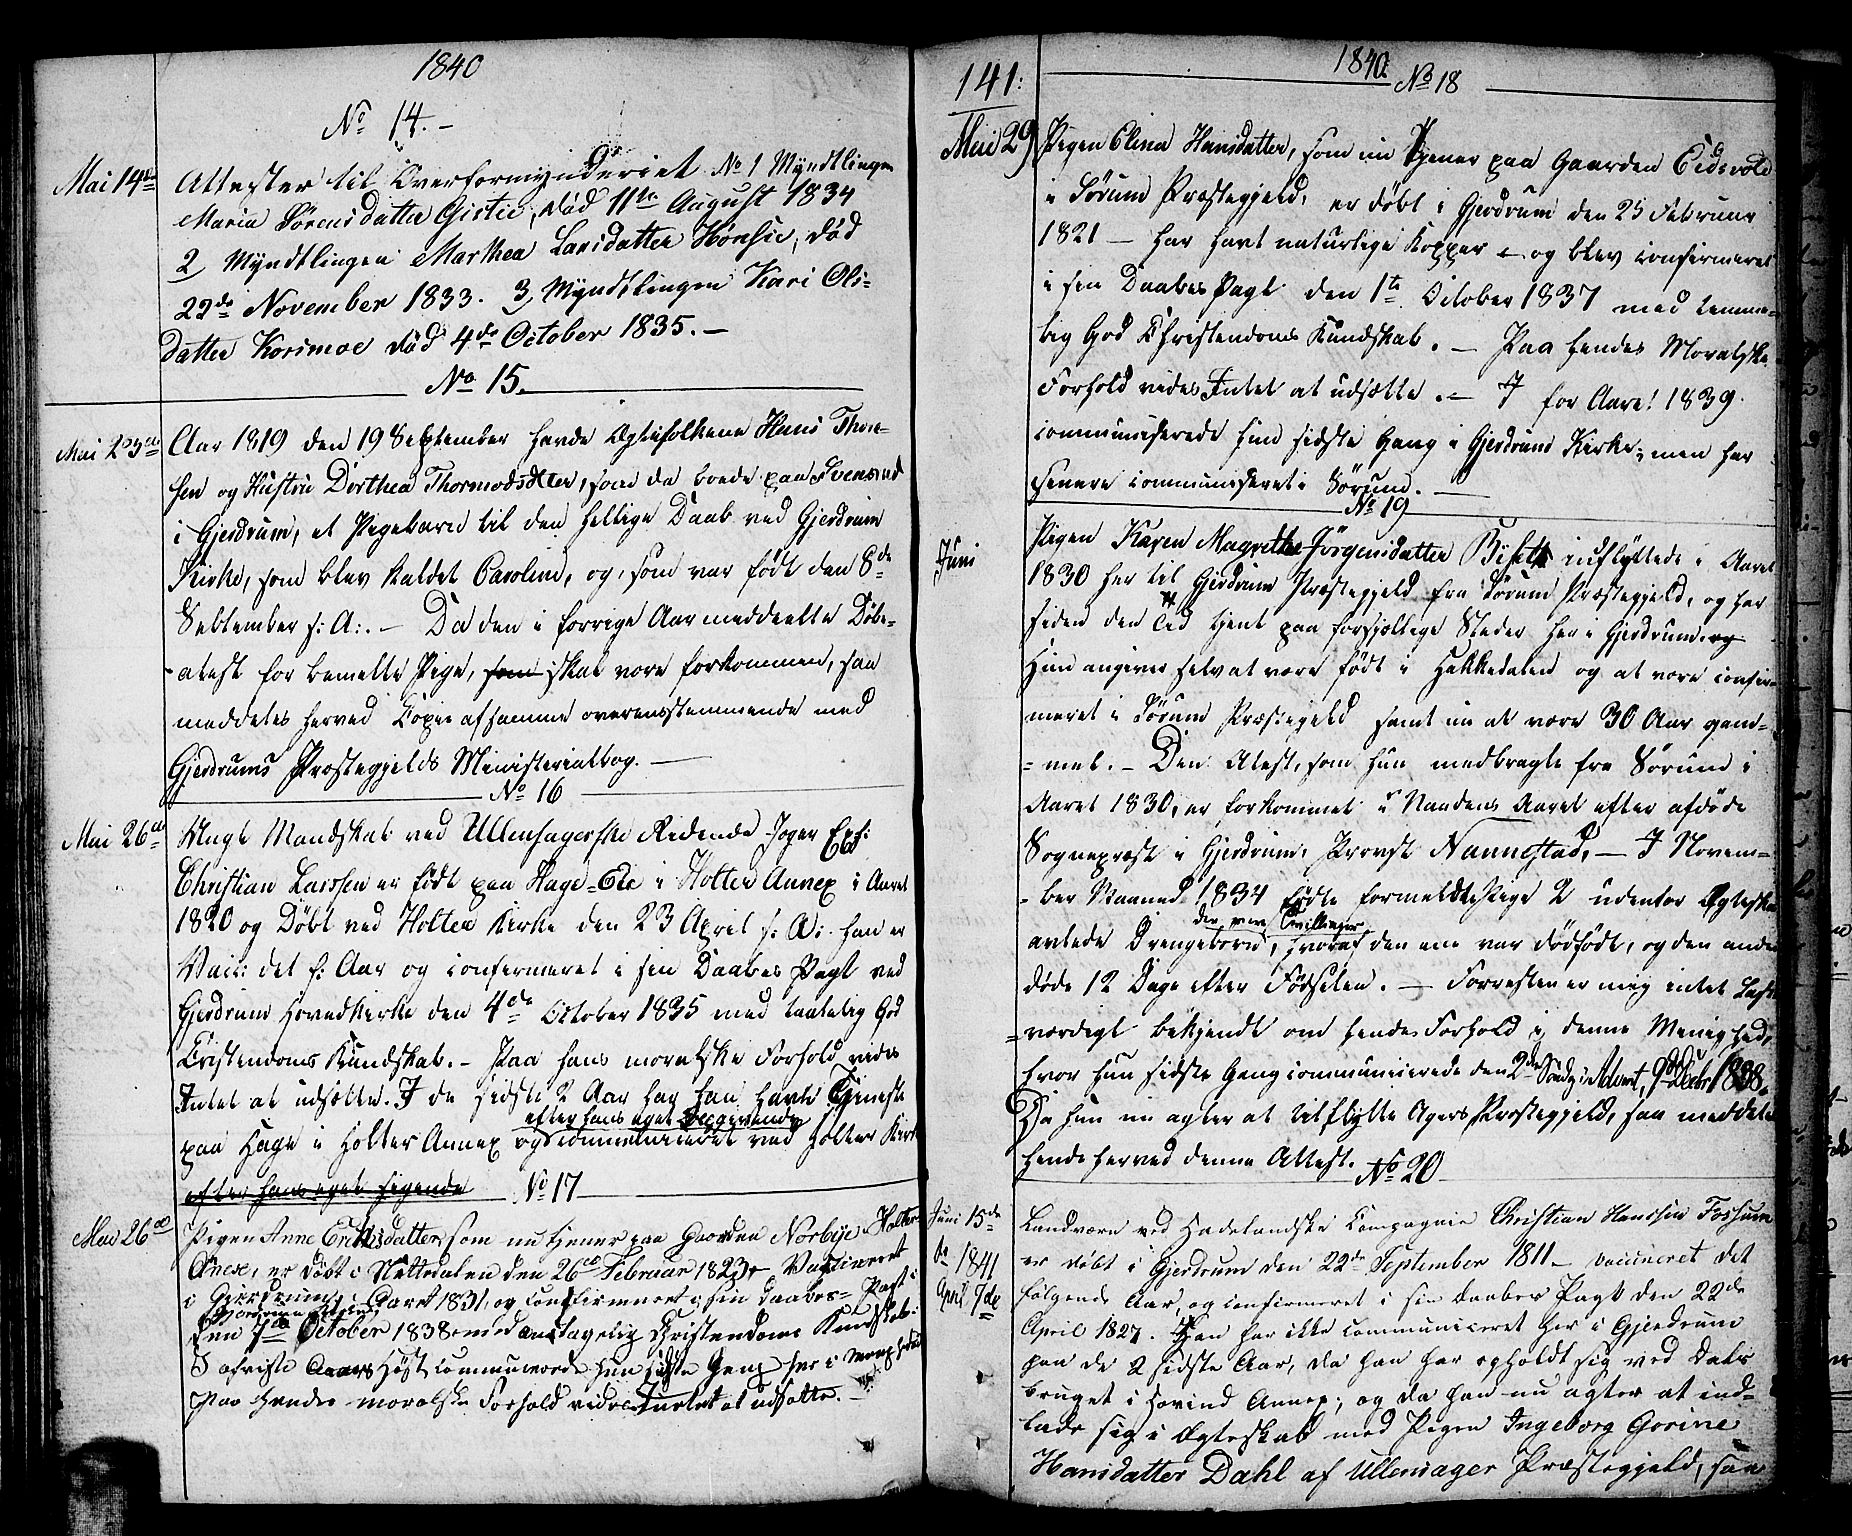 1840
No 14.-
Mai 14de Attester til Overformynderiet No 1 Myndtlingen
Maria Sörensdatter Gistie, död 11te August 1834
2, Myndtlingen Marthea Larsdatter Hönsie, död
22de November 1833. 3, Myndtlingen Kari Ols-
datter Korsmoe död 4de October 1835.-
No 15.
Mai 23de Aar 1819 den 19 September havde Ægtefolkene Hans Thor-
sen og Hustru Dorthea Thormodsdtter, som da boede paa Svensrud
i Gjerdrum, et Pigebarn til den hellige Daab ved Gjerdrum
Kirke, som blev kaldet Caroline, og, som var født den 8de
September s: A:. - Da den i forrige Aar meddeelte Døbe-
-atest for bemelte Pige, som skal være forkommen, saa
meddeles herved Copie af samme overensstemmende med
Gjerdrums Præstegjelds Ministerialbog.-
No 16
Mai 26de Vagt Mandskab ved Ullensagerske Ridende Jæger Esk:
Christian Larssen er født paa Hage-Eie i Holter Annex i Aaret
1820 og Døbt ved Holter Kirke den 23 April s: A: han er
Vacc: det s: Aar og confirmeret i sin Daabes Pagt ved
Gjerdrum Hovedkirke den 4de October 1835 med taalelig God
Cristendoms Kundskab.- Paa hans moralske Forhold vides
Intet at udsætte. I de sidste 2 Aar har han havt Tjeneste
efter hans eget Opgivende
paa Hage i Holter Annex og communiceret ved Holter Kirke
efter hans eget sigende No 17
Mai 26de Pigen Anne Eriksdatter, som nu tjener paa Gaarden Norbye i Holter
Anex, er døbt i Nittedalen den 26de Februar 1823 - Vaccineret
i Gjerdrum i Aaret 1831, og confirmeret i sin Daabes-Pagt i
Gjerdrum Kirke
den 7de October 1838 med antagelig Christendoms Kundskab.
I afvigte Aars Høst communicerede hun sidste Gang her i Menigheden
Paa hendes moralske Forhold vides Intet at udsætte.-
141:
1840. No 18
Mai 29 Pigen Elina Hansdatter, som nu tjener paa Gaarden Eidsvold
i Sørum Præstegjeld, er døbt i Gjerdrum den 25 Februar
1821 - har havt naturlige Kopper - og blev confirmeret
i sin Daabes Pagt den 1te October 1837 med temme-
lig God Christendoms Kundskab. - Paa hendes Moralske
Forhold vides Intet at udsætte. - I for Aaret 1839
communiserede hun sidste Gang i Gjerdrum Kirke; men har
senere communiseret i Sørum. -
No 19
Juni Pigen Karen Magrethe Jörgensdatter Bjself indflyttede i Aaret
1830 her til Gjerdrum Præstegjeld fra Sørum Præstegjeld, og har
siden den Tid tjent paa forskjellige Steder her i Gjerdrum og
Hun angiver selv at være født i Hakkedalen og at være confir-
meret i Sørum Præstegjeld samt nu at være 30 Aar gam-
-mel. - Den Atest, som hun medbragte fra Sørum i
Aaret 1830, er forkommet i Naadens Aaret efter afdøde
Sognepræst i Gjerdrum, Provst Nannestad, - I Novem-
-ber Maaned 1834 fødte formeldte Pige 2 udenfor Ægteskab
der vare Tvillinger
avlede Drengebørn, hvoraf den ene var dødfødt, og den anden
døde 12 Dage efter Fødselen. - Forresten er mig intet Last-
-værdigt bekjendt om hendes Forhold i denne Menighed,
hvor hun sidste Gang communicerede den 2de Søndg i Advent, 9de Decbr 1838.
Da hun nu agter at tilflytte Agers Præstegjeld, saa meddeles
hende herved denne Attest.
No 20
Juni 15de Landværn ved Hadelandske Compagnie Christian Hanssen Fossum
er døbt i Gjerdrum den 22de September 1811 - vaccineret det
do 1841
April 7de
følgende Aar, og confirmeret i sin Daabes Pagt den 22de
April 1827. Han har ikke communiceret her i Gjerdrum
paa de 2 sidste Aar, da han har opholdt sig ved Dals
bruget i Hovind Annex; og da han nu agter at ind-
lade sig i Ægteskab med Pigen Ingeborg Gorine
Hansdatter Dahl af Ullensager Præstegjeld, saa